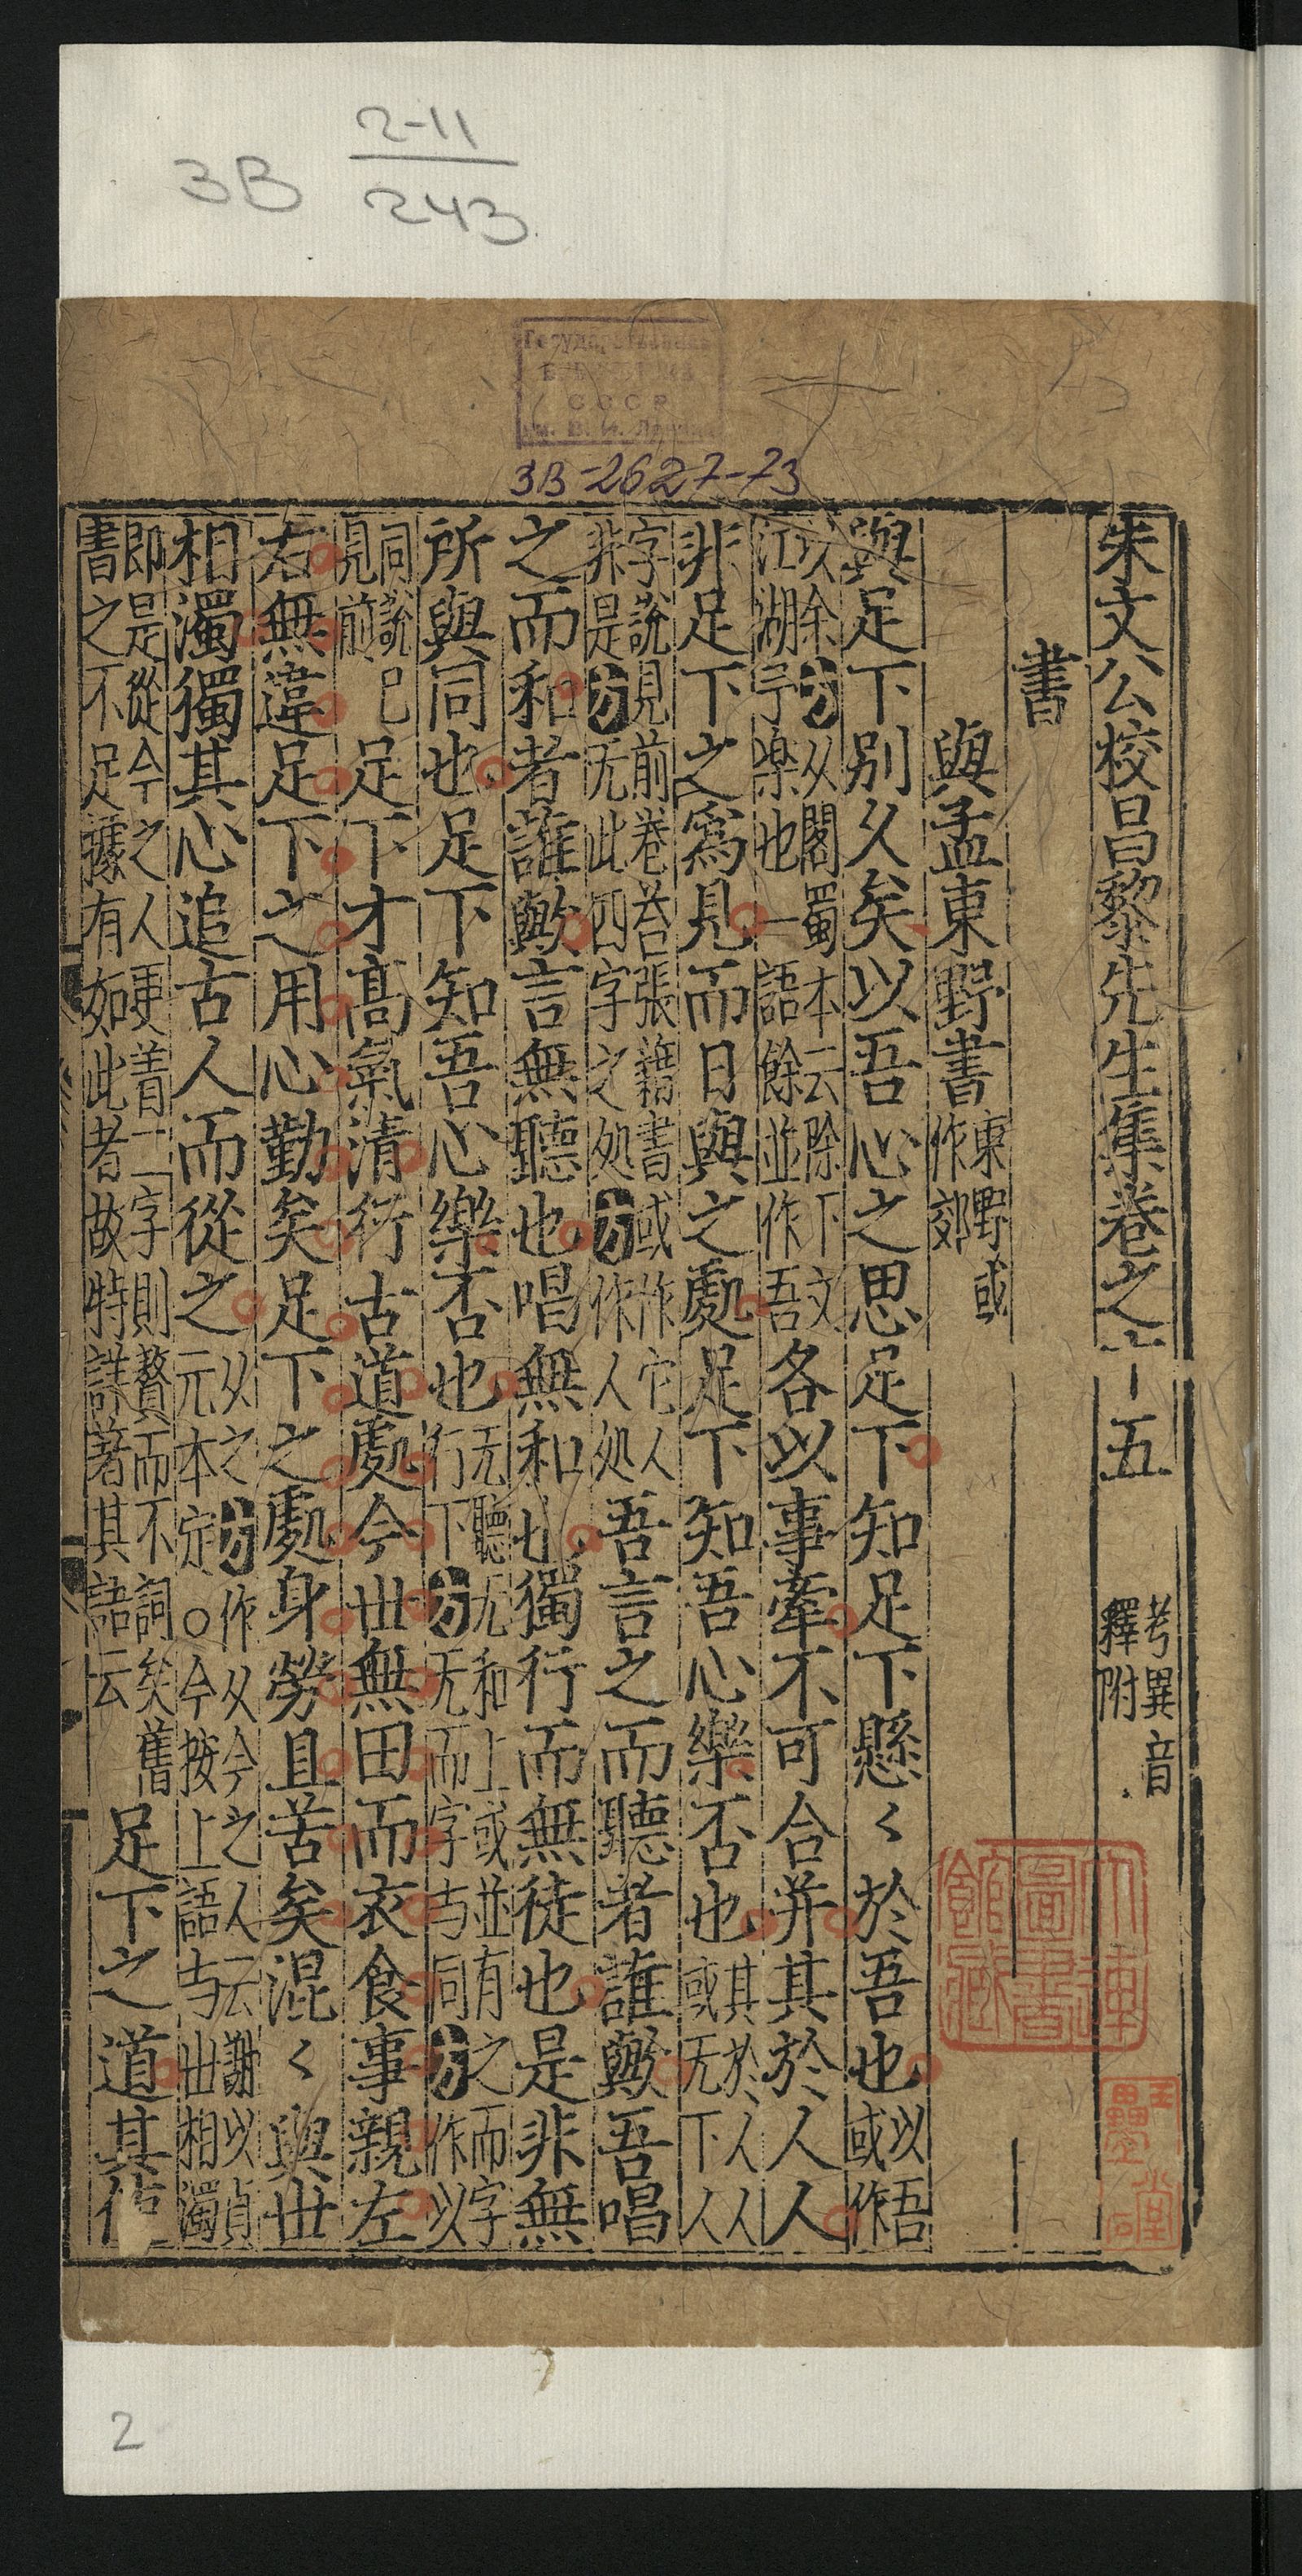 2-11
3В 243
СССР
3В-2627-73
朱文公校昌黎先生集卷之十五 考異音釋附
書
與孟東野書 東野或作郊
與足下別久矣以吾心之思足下知足下懸〻於吾也 以吾或作
以余方从閣蜀本云除下文江湖予樂也一語餘並作吾 各以事牽不可合并其於人人
非足下之爲見而日與之處足下知吾心樂否也 其於人人或无下人
字說見前卷荅張籍書或作它人非是方无此四字之処方作人処 吾言之而聽者誰歟吾唱
之而和者誰歟言無聽也唱無和也獨行而無徒也是非無
所與同也足下知吾心樂否也 无聽无和上或並有之而字行下方无而字与同方作以
同說見前已 足下才高氣清行古道處今世無田而衣食事親左
右無違足下之用心勤矣足下之處身勞且苦矣混〻與世
相濁獨其心追古人而從之 从之方作从今之人云謝以貞元本定○今按上語与世相濁
即是從今之人更着二字則贅而不詞矣舊書之不足據有如此者故特詳著其語云 足下之道其使
大連圖書館藏
2